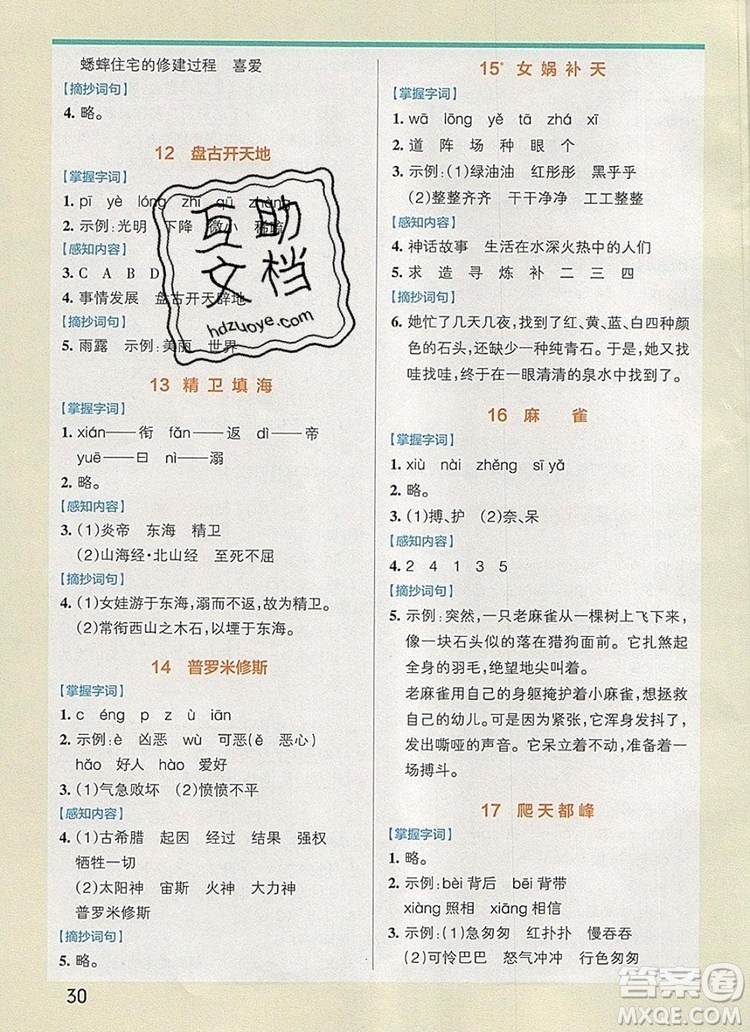 蟋蟀住宅的修建过程 喜爱
【摘抄词句】
4. 略。
12 盘古开天地
【掌握字词】
1. pī yè lóng zhī qū zhàng
2. 示例:光明 下降 微小 稀罕
【感知内容】
3. C A B D
4. 事情发展 盘古开天辟地
【摘抄词句】
5. 雨露 示例:美丽 世界
13 精卫填海
【掌握字词】
1. xián——衔 fǎn——返 dì——帝
yuē——曰 nì——溺
2. 略。
【感知内容】
3. (1)炎帝 东海 精卫
(2)山海经·北山经 至死不屈
【摘抄词句】
4. (1)女娃游于东海,溺而不返,故为精卫。
(2)常衔西山之木石,以堙于东海。
14 普罗米修斯
【掌握字词】
1. c éng p z ù iān
2. 示例:è 凶恶 wù 可恶(ě 恶心)
hǎo 好人 hào 爱好
3. (1)气急败坏 (2)愤愤不平
【感知内容】
4. (1)古希腊 起因 经过 结果 强权
牺牲一切
(2)太阳神 宙斯 火神 大力神
普罗米修斯
【摘抄词句】
5. 略。
30
15* 女娲补天
【掌握字词】
1. wā lōng zǐ tā zhá xī
2. 道 阵 场 种 眼 个
3. 示例:(1)绿油油 红彤彤 黑乎乎
(2)整整齐齐 干干净净 工工整整
【感知内容】
4. 神话故事 生活在水深火热中的人们
5. 求 造 寻 炼 补 二 三 四
【摘抄词句】
6. 她忙了几天几夜,找到了红、黄、蓝、白四种颜
色的石头,还缺少一种纯青石。于是,她又找
哇找哇,终于在一眼清清的泉水中找到了。
16 麻雀
【掌握字词】
1. xiù nài zhěng sī yǎ
2. 略。
3. (1)搏、护 (2)奈、呆
【感知内容】
4. 2 4 1 3 5
【摘抄词句】
5. 示例:突然,一只老麻雀从一棵树上飞下来,
像一块石头似的落在猎狗面前。它挓挲起
全身的羽毛,绝望地尖叫着。
老麻雀用自己的身躯掩护着小麻雀,想拯救
自己的幼儿。可是因为紧张,它浑身发抖了,
发出嘶哑的声音。它呆立着不动,准备着一
场搏斗。
17 爬天都峰
【掌握字词】
1. 略。
2. 示例:bèi 背后 bēi 背带
xiàng 照相 xiāng 相信
3. 示例:(1)急匆匆 红扑扑 慢吞吞
(2)可怜巴巴 怒气冲冲 行色匆匆
互助
文档
hdzuoye.com
答案圈
MXQE.COM